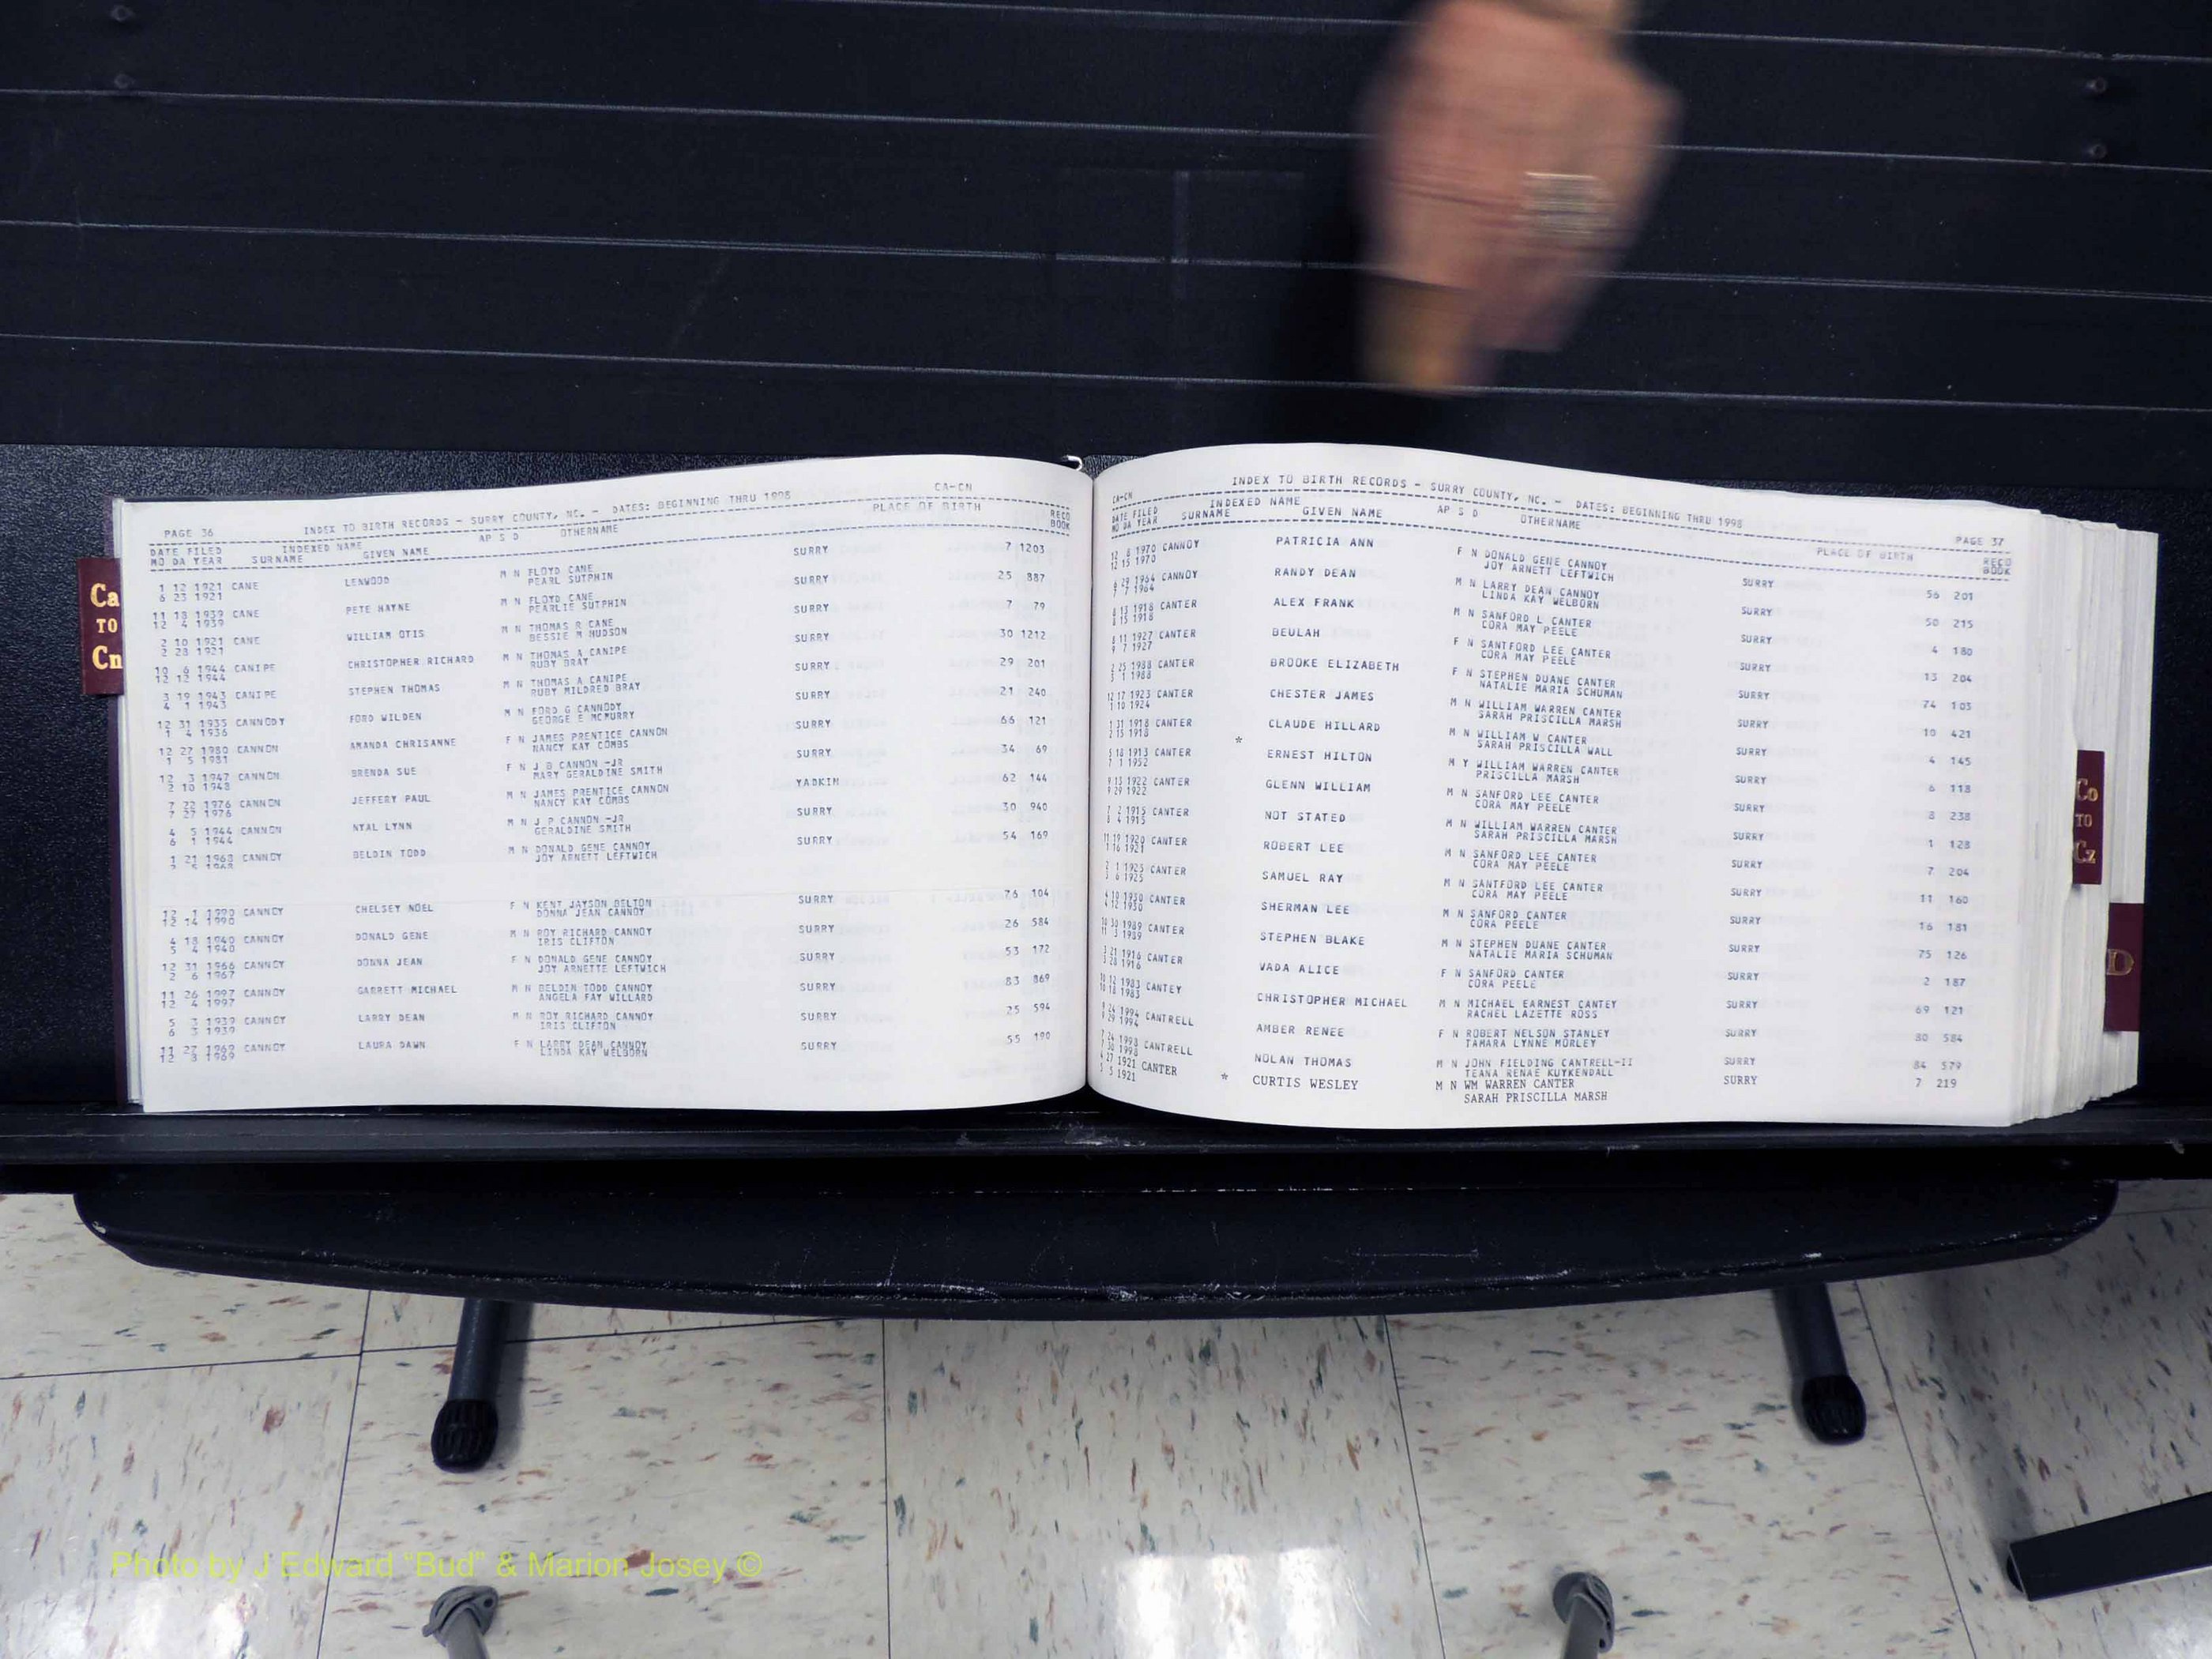 CA-CN
PAGE 36 INDEX TO BIRTH RECORDS - SURRY COUNTY, NC. - DATES: BEGINNING THRU 1998
DATE FILED INDEXED NAME AP S D OTHERNAME PLACE OF BIRTH RECD
MO DA YEAR SURNAME GIVEN NAME BOOK
1 12 1921 CANE LENWOOD M N FLOYD CANE SURRY 7 1203
6 23 1921 PEARL SUTPHIN
11 18 1939 CANE PETE HAYNE M N FLOYD CANE SURRY 25 887
12 4 1939 PEARLIE SUTPHIN
2 10 1921 CANE WILLIAM OTIS M N THOMAS R CANE SURRY 7 79
2 28 1921 BESSIE M HUDSON
10 6 1944 CANIPE CHRISTOPHER RICHARD M N THOMAS A CANIPE SURRY 30 1212
12 12 1944 RUBY BRAY
3 19 1943 CANIPE STEPHEN THOMAS M N THOMAS A CANIPE SURRY 29 201
4 1 1943 RUBY MILDRED BRAY
12 31 1935 CANNODY FORD WILDEN M N FORD G CANNODY SURRY 21 240
1 4 1936 GEORGE E MCMURRY
12 27 1980 CANNON AMANDA CHRISANNE F N JAMES PRENTICE CANNON SURRY 66 121
1 5 1981 NANCY KAY COMBS
12 3 1947 CANNON BRENDA SUE F N J B CANNON -JR SURRY 34 69
2 10 1948 MARY GERALDINE SMITH
7 22 1976 CANNON JEFFERY PAUL M N JAMES PRENTICE CANNON YADKIN 62 144
7 27 1976 NANCY KAY COMBS
4 5 1944 CANNON NYAL LYNN M N J P CANNON -JR SURRY 30 940
6 1 1944 GERALDINE SMITH
1 21 1968 CANNOY BELDIN TODD M N DONALD GENE CANNOY SURRY 54 169
JOY ARNETT LEFTWICH
12 1 1990 CANNOY CHELSEY NOEL F N KENT JAYSON BELTON SURRY 76 104
12 14 1990 DONNA JEAN CANNOY
4 18 1940 CANNOY DONALD GENE M N ROY RICHARD CANNOY SURRY 26 584
5 4 1940 IRIS CLIFTON
12 31 1966 CANNOY DONNA JEAN F N DONALD GENE CANNOY SURRY 53 172
2 6 1967 JOY ARNETTE LEFTWICH
11 26 1997 CANNOY GARRETT MICHAEL M N BELDIN TODD CANNOY SURRY 83 869
12 4 1997 ANGELA FAY WILLARD
5 3 1939 CANNOY LARRY DEAN M N ROY RICHARD CANNOY SURRY 25 594
6 3 1939 IRIS CLIFTON
11 27 1969 CANNOY LAURA DAWN F N LARRY DEAN CANNOY SURRY 55 190
12 8 1969 LINDA KAY WELBORN
Ca
TO
Cn
CA-CN INDEX TO BIRTH RECORDS - SURRY COUNTY, NC. - DATES: BEGINNING THRU 1998 PAGE 37
DATE FILED INDEXED NAME AP S D OTHERNAME PLACE OF BIRTH RECD
MO DA YEAR SURNAME GIVEN NAME BOOK
12 8 1970 CANNOY PATRICIA ANN F N DONALD GENE CANNOY SURRY 56 201
12 15 1970 JOY ARNETT LEFTWICH
6 29 1964 CANNOY RANDY DEAN M N LARRY DEAN CANNOY SURRY 50 215
7 7 1964 LINDA KAY WELBORN
13 1918 CANTER ALEX FRANK M N SANFORD L CANTER SURRY 4 180
15 1918 CORA MAY PEELE
11 1927 CANTER BEULAH F N SANTFORD LEE CANTER SURRY 13 204
9 7 1927 CORA MAY PEELE
2 25 1988 CANTER BROOKE ELIZABETH F N STEPHEN DUANE CANTER SURRY 74 103
3 1 1988 NATALIE MARIA SCHUMAN
12 17 1923 CANTER CHESTER JAMES M N WILLIAM WARREN CANTER SURRY 10 421
1 10 1924 SARAH PRISCILLA MARSH
1 31 1918 CANTER CLAUDE HILLARD M N WILLIAM W CANTER SURRY 4 145
2 15 1918 SARAH PRISCILLA WALL
5 18 1913 CANTER * ERNEST HILTON M Y WILLIAM WARREN CANTER SURRY 6 118
7 1 1952 PRISCILLA MARSH
9 13 1922 CANTER GLENN WILLIAM M N SANFORD LEE CANTER SURRY 8 238
9 29 1922 CORA MAY PEELE
7 2 1915 CANTER NOT STATED M N WILLIAM WARREN CANTER SURRY 1 128
8 4 1915 SARAH PRISCILLA MARSH
11 19 1920 CANTER ROBERT LEE M N SANFORD LEE CANTER SURRY 7 204
1 16 1921 CORA MAY PEELE
2 1 1925 CANTER SAMUEL RAY M N SANTFORD LEE CANTER SURRY 11 160
3 6 1925 CORA MAY PEELE
4 10 1930 CANTER SHERMAN LEE M N SANFORD CANTER SURRY 16 181
4 12 1930 CORA PEELE
10 30 1989 CANTER STEPHEN BLAKE M N STEPHEN DUANE CANTER SURRY 75 126
11 3 1989 NATALIE MARIA SCHUMAN
3 21 1916 CANTER VADA ALICE F N SANFORD CANTER SURRY 2 187
3 28 1916 CORA PEELE
10 12 1983 CANTEY CHRISTOPHER MICHAEL M N MICHAEL EARNEST CANTEY SURRY 69 121
10 18 1983 RACHEL LAZETTE ROSS
9 24 1994 CANTRELL AMBER RENEE F N ROBERT NELSON STANLEY SURRY 80 584
9 29 1994 TAMARA LYNNE MORLEY
7 24 1998 CANTRELL NOLAN THOMAS M N JOHN FIELDING CANTRELL-II SURRY 84 579
7 30 1998 TEANA RENAE KUYKENDALL
4 27 1921 CANTER * CURTIS WESLEY M N WM WARREN CANTER SURRY 7 219
5 5 1921 SARAH PRISCILLA MARSH
Co
TO
Cz
D
Photo by J Edward "Bud" & Marion Josey ©